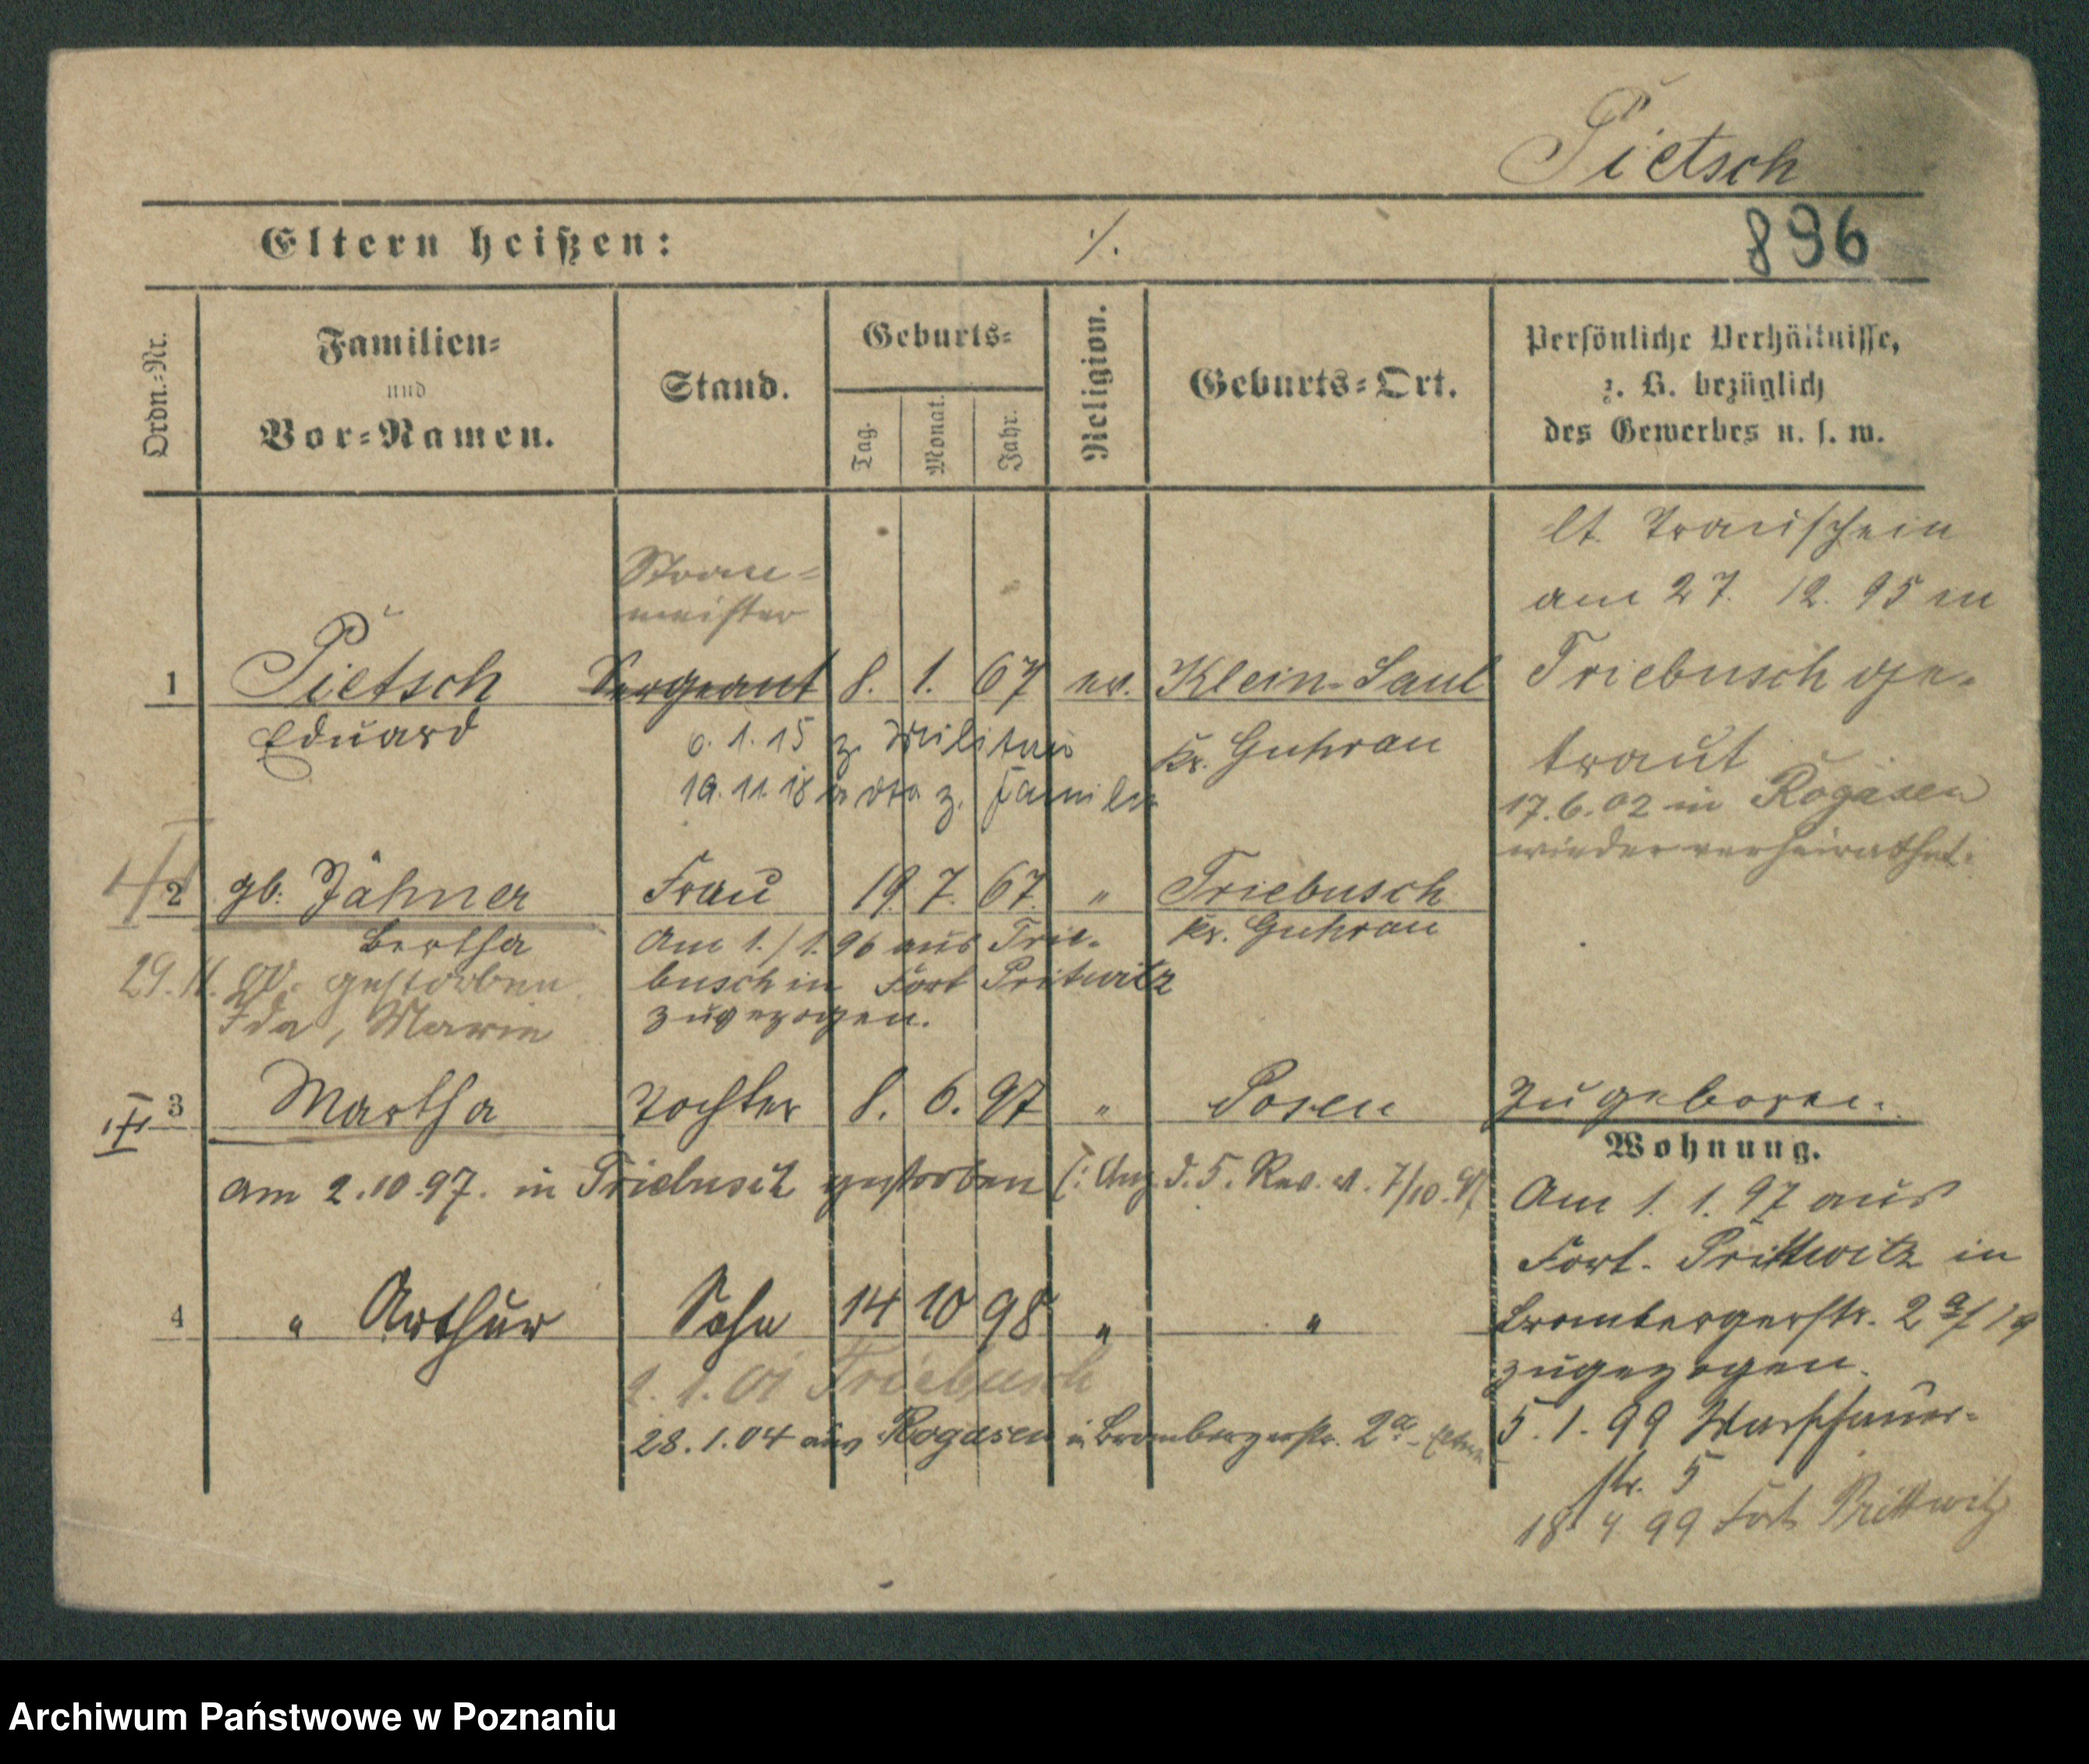 Pietsch
896
Eltern heißen: ./.
Ordn.-Nr.
Familien-
und
Vor-Namen.
Stand.
Geburts-
Tag.
Monat.
Jahr.
Religion.
Geburts-Ort.
Persönliche Verhältnisse,
z. B. bezüglich
des Gewerbes u. s. w.
lt. Trauschein
am 27. 12. 95 in
Triebusch ge-
traut
17.6.02 in Rogasen
wieder verheirathet.
meister
1 Pietsch Sergeant 8. 1. 67 ev. Klein-Saul
Eduard
Kr. Guhrau
6.1.15 z. Militär
19.11.18 z. Familie
2 gb. Jähner Frau 19. 7. 67. " Triebusch
Bertha
Kr. Guhrau
Am 1./1.96 aus Trie-
busch in Fort Pritwitz
zugezogen.
29.11. 00. gestorben
Ida, Marie
3 Martha Tochter 8. 6. 97 " Posen Zugeboren.
am 2.10.97. in Triebusch gestorben (: Anz. d. 5. Rev. v. 7/10.97
4 " Arthur Sohn 14 10 98 " "
1.01 Triebusch
28.1.04 aus Rogasen in Brombergerstr. 2a
Wohnung.
Am 1. 1. 97 aus
Fort. Prittwitz in
Brombergerstr. 2a/19
zugezogen.
5.1.99 Warschauer-
str. 5
18 4 99 Fort Prittwitz
Archiwum Państwowe w Poznaniu